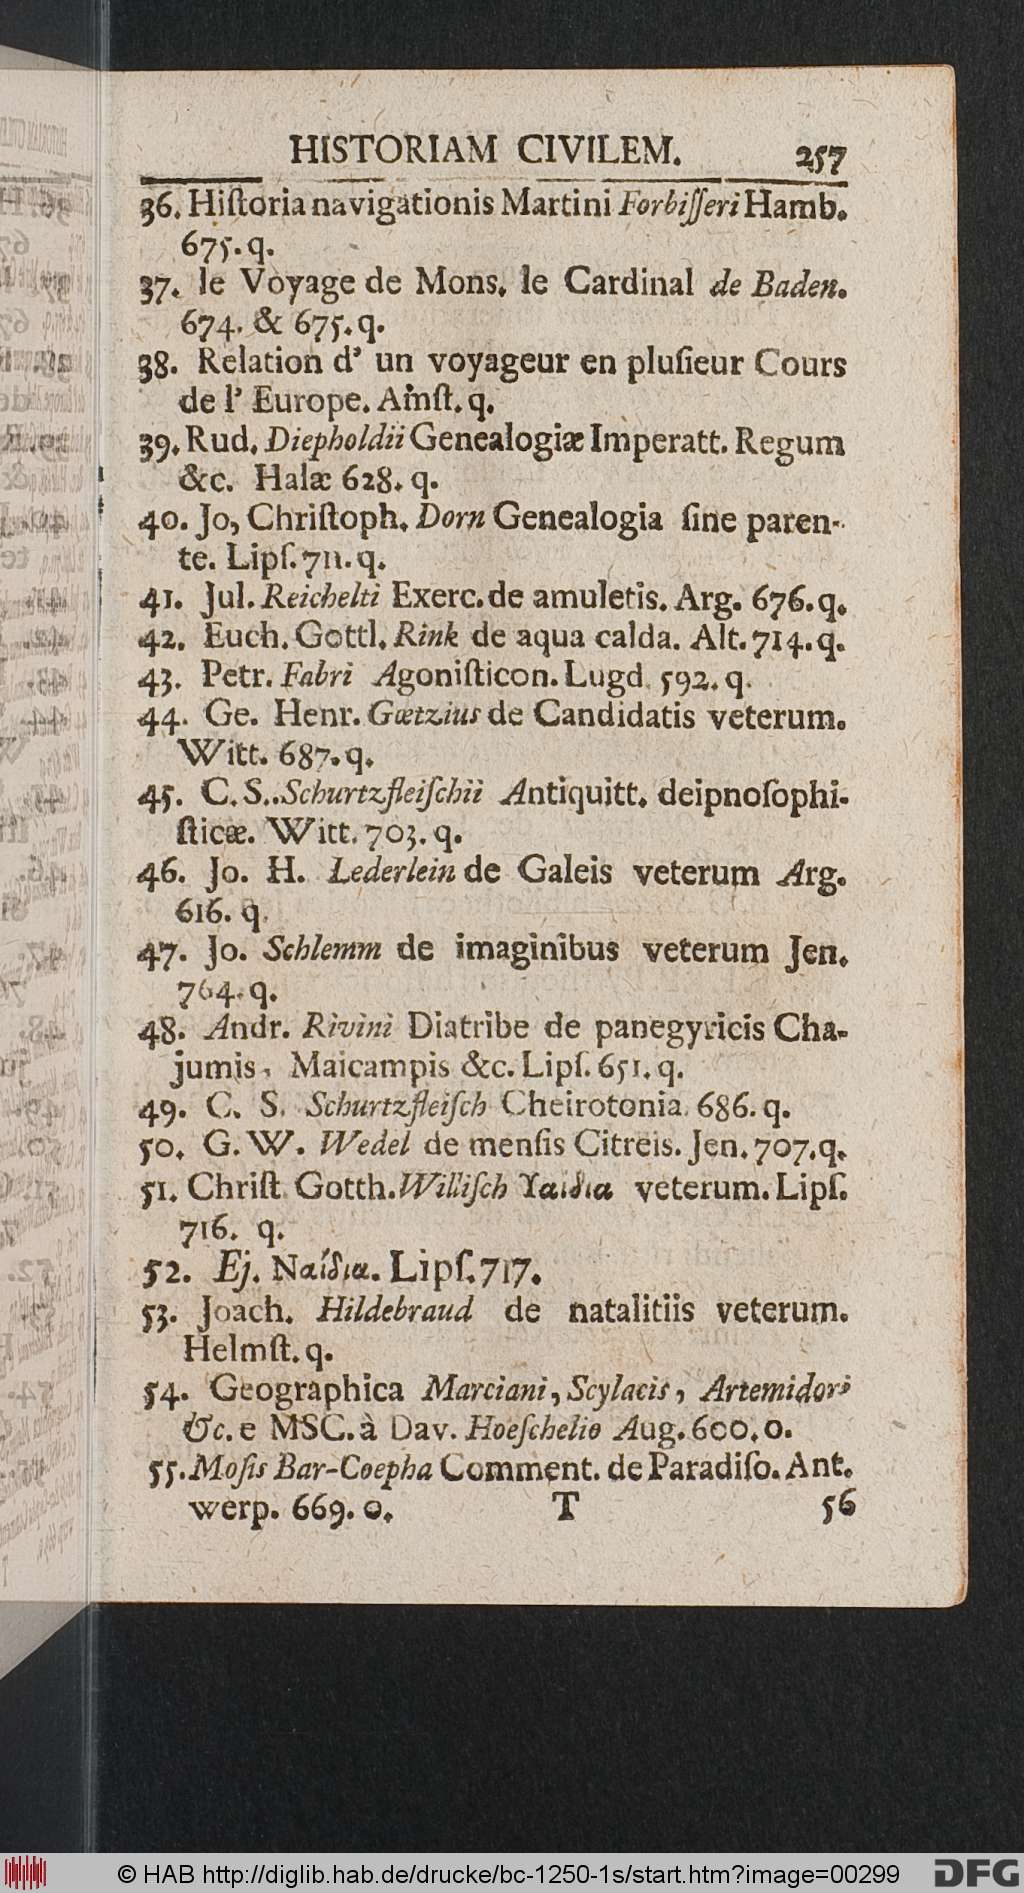 HISTORIAM CIVILEM. 257
36. Hiſtoria navigationis Martini Forbiſſeri Hamb.
675. q.
37. le Voyage de Mons. le Cardinal de Baden.
674. & 675. q.
38. Relation d' un voyageur en pluſieur Cours
de l' Europe. Amſt. q.
39. Rud. Diepholdii Genealogiæ Imperatt. Regum
&c. Halæ 628. q.
40. Jo, Chriſtoph. Dorn Genealogia ſine paren-
te. Lipſ. 711. q.
41. Jul. Reichelti Exerc. de amuletis. Arg. 676. q.
42. Euch. Gottl. Rink de aqua calda. Alt. 714. q.
43. Petr. Fabri Agoniſticon. Lugd. 592. q.
44. Ge. Henr. Gœtzius de Candidatis veterum.
Witt. 687. q.
45. C. S. Schurtzfleiſchii Antiquitt. deipnoſophi-
ſticæ. Witt. 703. q.
46. Jo. H. Lederlein de Galeis veterum Arg.
616. q.
47. Jo. Schlemm de imaginibus veterum Jen.
764. q.
48. Andr. Rivini Diatribe de panegyricis Cha-
jumis, Maicampis &c. Lipſ. 651. q.
49. C. S. Schurtzfleiſch Cheirotonia. 686. q.
50. G. W. Wedel de menſis Citreis. Jen. 707. q.
51. Chriſt. Gotth. Williſch Υαιδια veterum. Lipſ.
716. q.
52. Ej. Ναίδια. Lipſ. 717.
53. Joach. Hildebraud de natalitiis veterum.
Helmſt. q.
54. Geographica Marciani, Scylacis, Artemidori
&c. e MSC. à Dav. Hoeſchelio Aug. 600. o.
55. Moſis Bar-Coepha Comment. de Paradiſo. Ant.
werp. 669. o. T 56
© HAB http://diglib.hab.de/drucke/bc-1250-1s/start.htm?image=00299 DFG